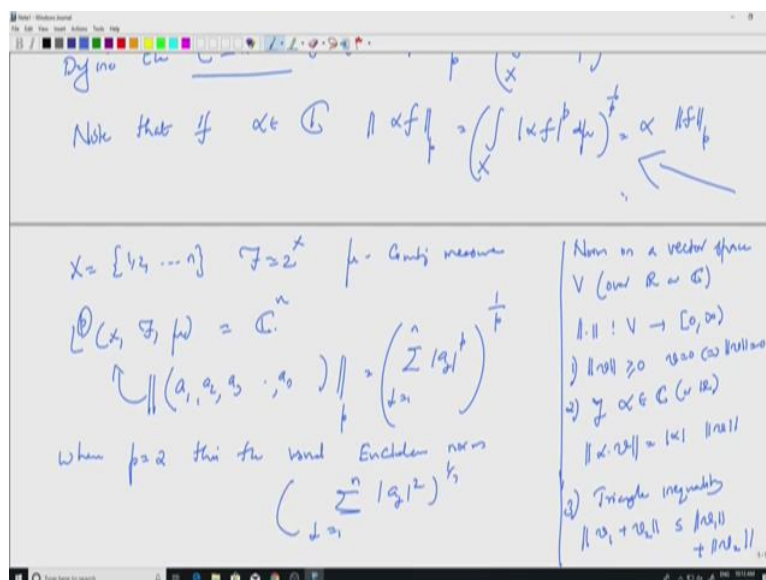 Note1 - Windows Journal
File Edit View Insert Actions Tools Help
Define the
Note that if α ∈ ℂ ‖αf‖_p = (∫_X |αf|^p dμ)^{1/p} = α ‖f‖_p
X = {1, 2, ... n} F = 2^X μ - Countj measure
L^p(X, F, μ) = ℂ^n
‖(a_1, a_2, a_3 ., a_n)‖_p = (Σ_{j=1}^n |a_j|^p)^{1/p}
when p=2 this the usual Euclidean norm
(Σ_{j=1}^n |a_j|^2)^{1/2}
Norm on a vector space
V (over ℝ or ℂ)
‖.‖ : V → [0, ∞)
1) ‖v‖ ≥ 0 v=0 ⇔ ‖v‖=0
2) If α ∈ ℂ (or ℝ)
‖α.v‖ = |α| ‖v‖
3) Triangle inequality
‖v_1 + v_2‖ ≤ ‖v_1‖
+ ‖v_2‖